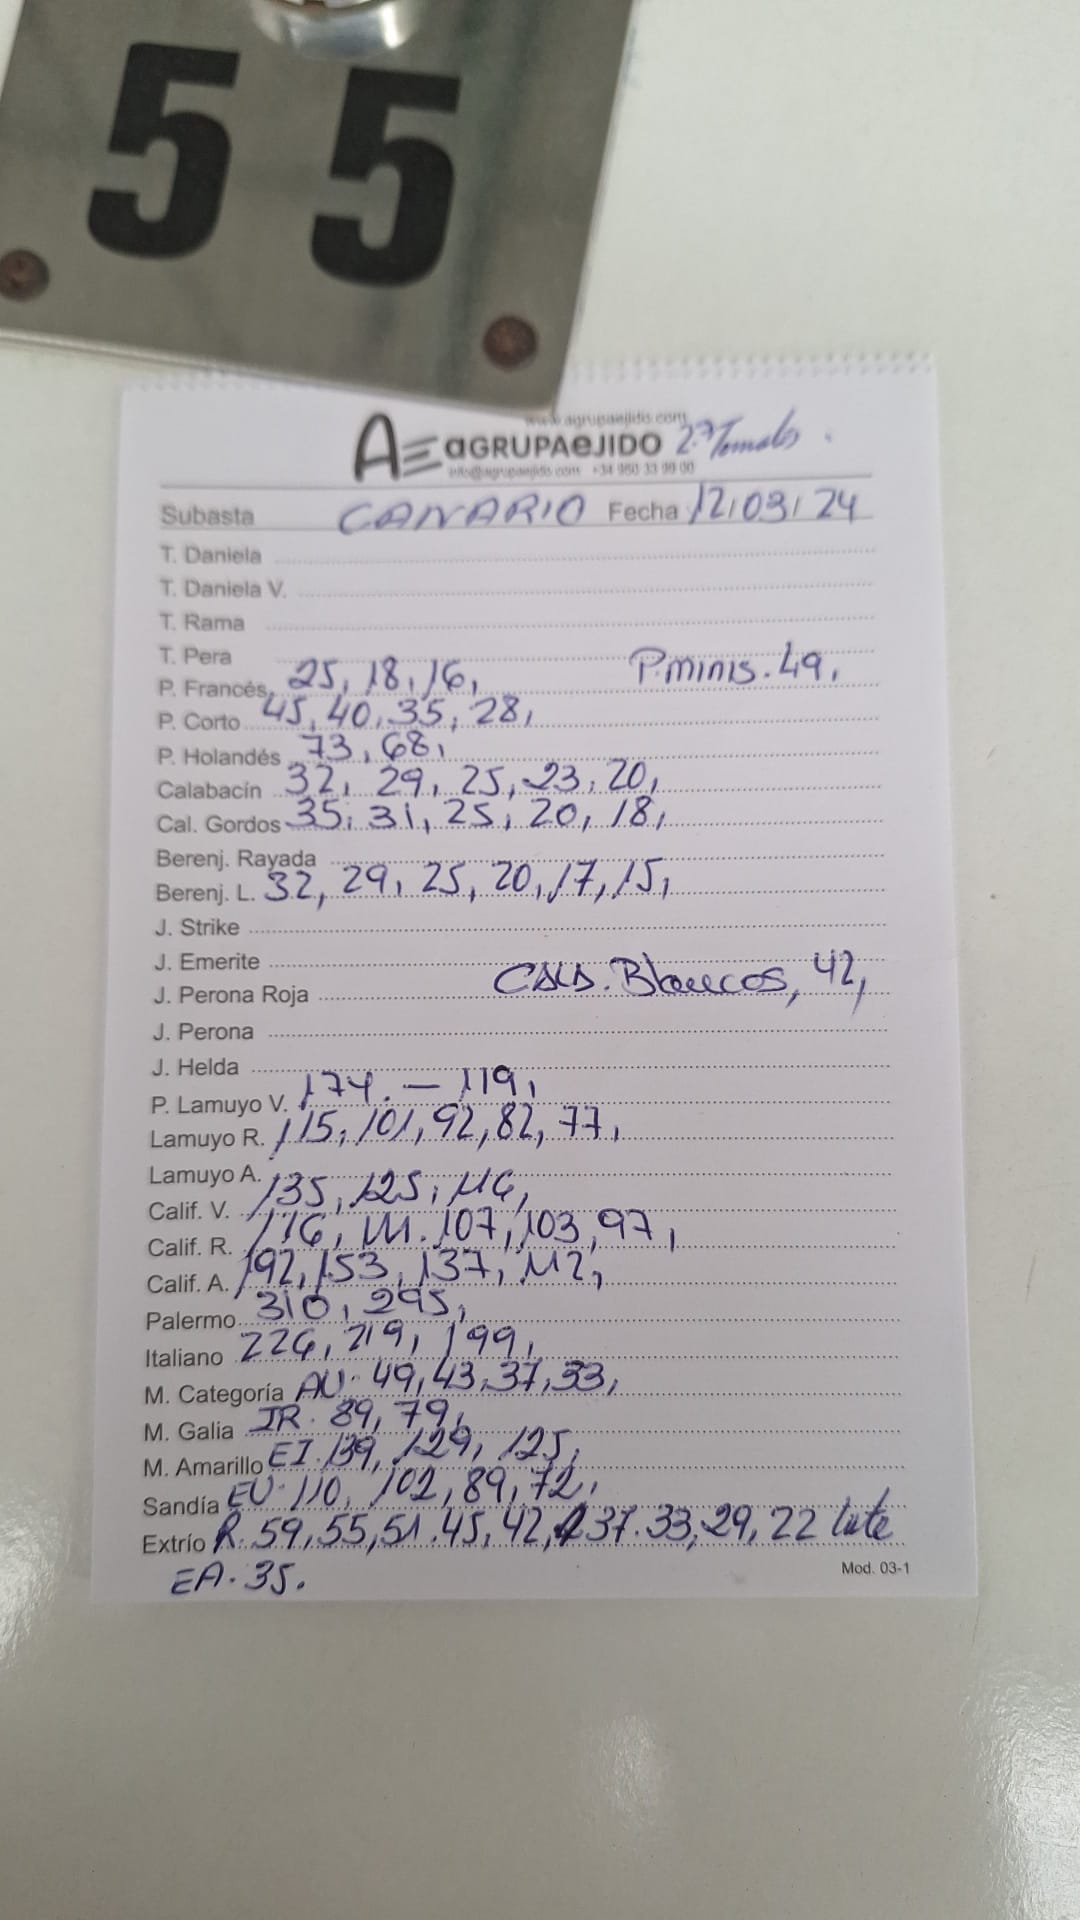 55
www.agrupaejido.com
AE aGRUPAeJIDO 2ª Tomates.
info@agrupaejido.com +34 950 33 99 00
Subasta CANARIO Fecha 12/03/24
T. Daniela
T. Daniela V.
T. Rama
T. Pera
P. Francés 25, 18, 16, P.minis. 49,
P. Corto 45, 40, 35, 28,
P. Holandés 73, 68,
Calabacín 32, 29, 25, 23, 20,
Cal. Gordos 35, 31, 25, 20, 18,
Berenj. Rayada
Berenj. L. 32, 29, 25, 20, 17, 15,
J. Strike
J. Emerite
J. Perona Roja Blancos, 42,
J. Perona
J. Helda
P. Lamuyo V. 174. — 119,
Lamuyo R. 115, 101, 92, 82, 77,
Lamuyo A.
Calif. V. 135, 125, 116,
Calif. R. 116, 111. 107, 103, 97,
Calif. A. 192, 153, 137, 112,
Palermo 310, 295,
Italiano 226, 219, 199,
M. Categoría AU. 49, 43, 37, 33,
M. Galia IR. 89, 79,
M. Amarillo EI. 139, 129, 125,
Sandía EU. 110, 102, 89, 72,
Extrío R. 59, 55, 51. 45, 42, 37. 33, 29, 22
EA. 35.
Mod. 03-1